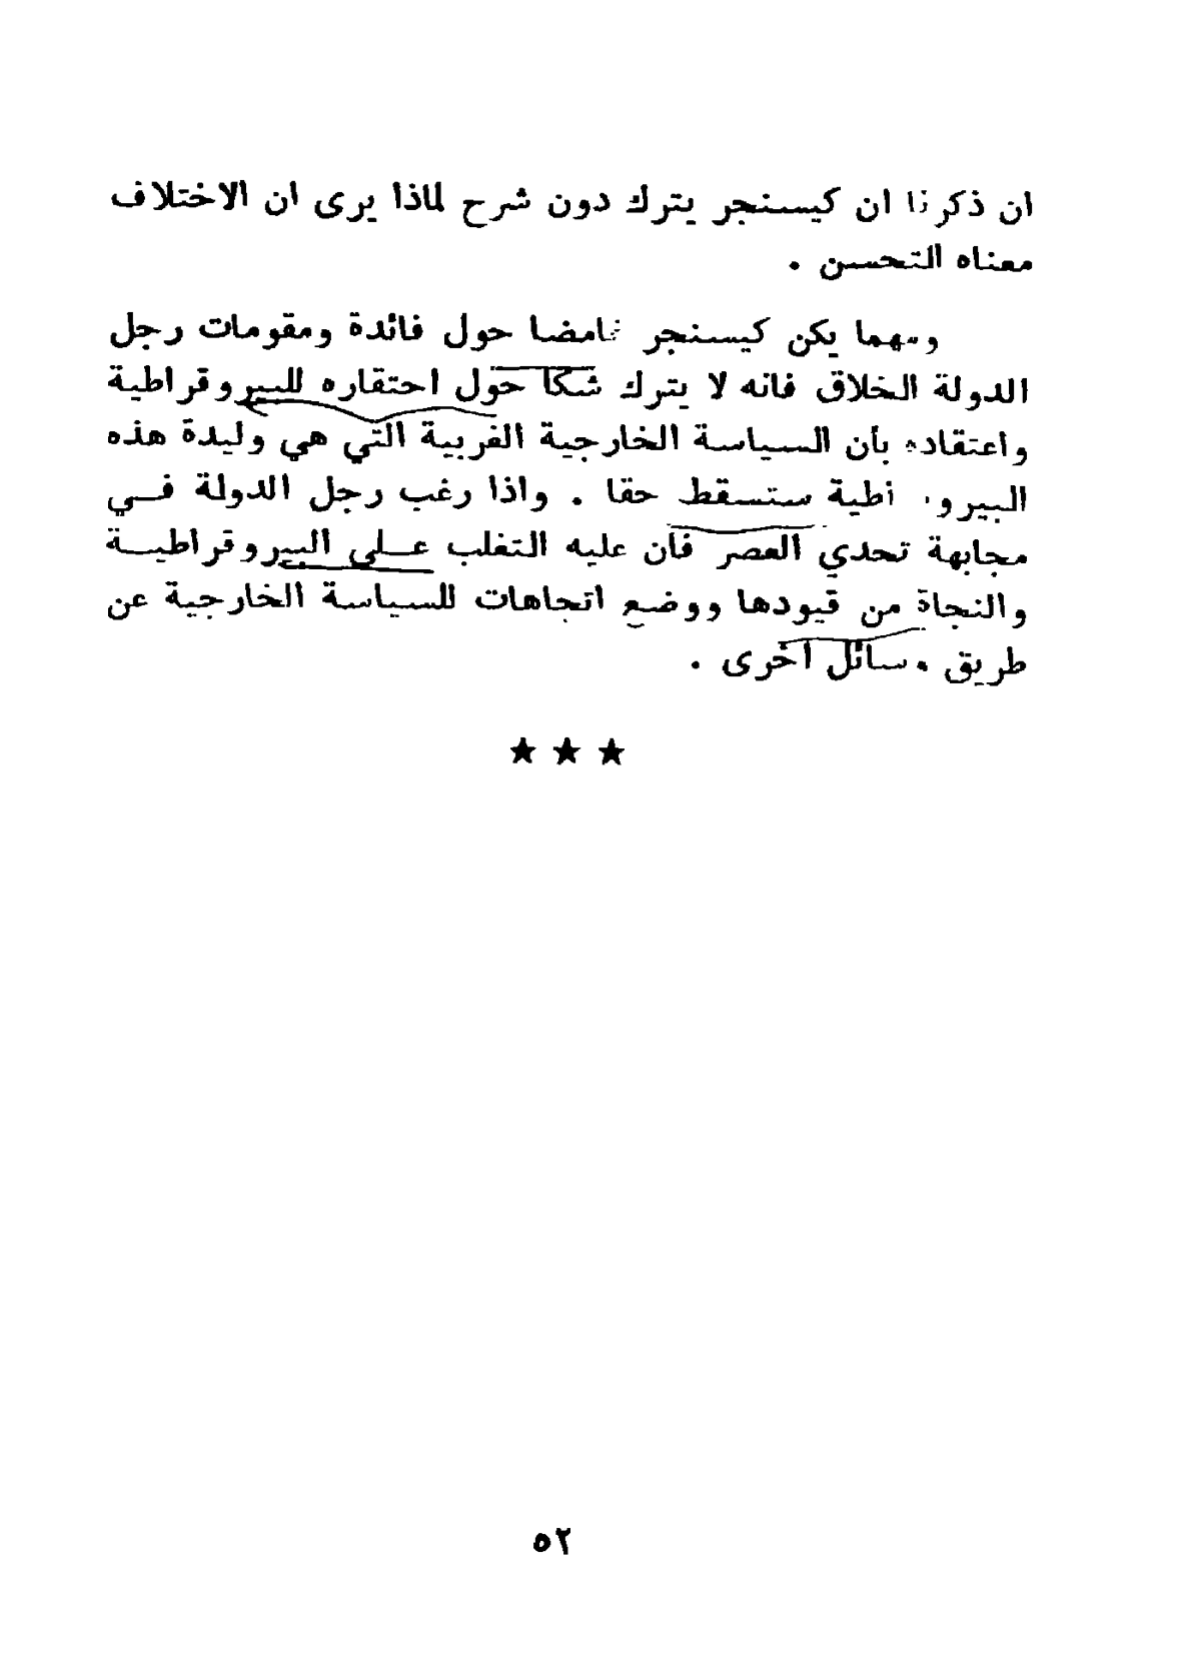 ان ذكرنا ان كيسنجر يترك دون شرح لماذا يرى ان الاختلاف
معناه التحسن .
ومهما يكن كيسنجر غامضا حول فائدة ومقومات رجل
الدولة الخلاق فانه لا يترك شكا حول احتقاره للبيروقراطية
واعتقاده بأن السياسة الخارجية الغربية التي هي وليدة هذه
البيروقراطية ستسقط حقا . واذا رغب رجل الدولة فــي
مجابهة تحدي العصر فان عليه التغلب علــى البيروقراطيــة
والنجاة من قيودها ووضع اتجاهات للسياسة الخارجية عن
طريق وسائل اخرى .
★ ★ ★
٥٢